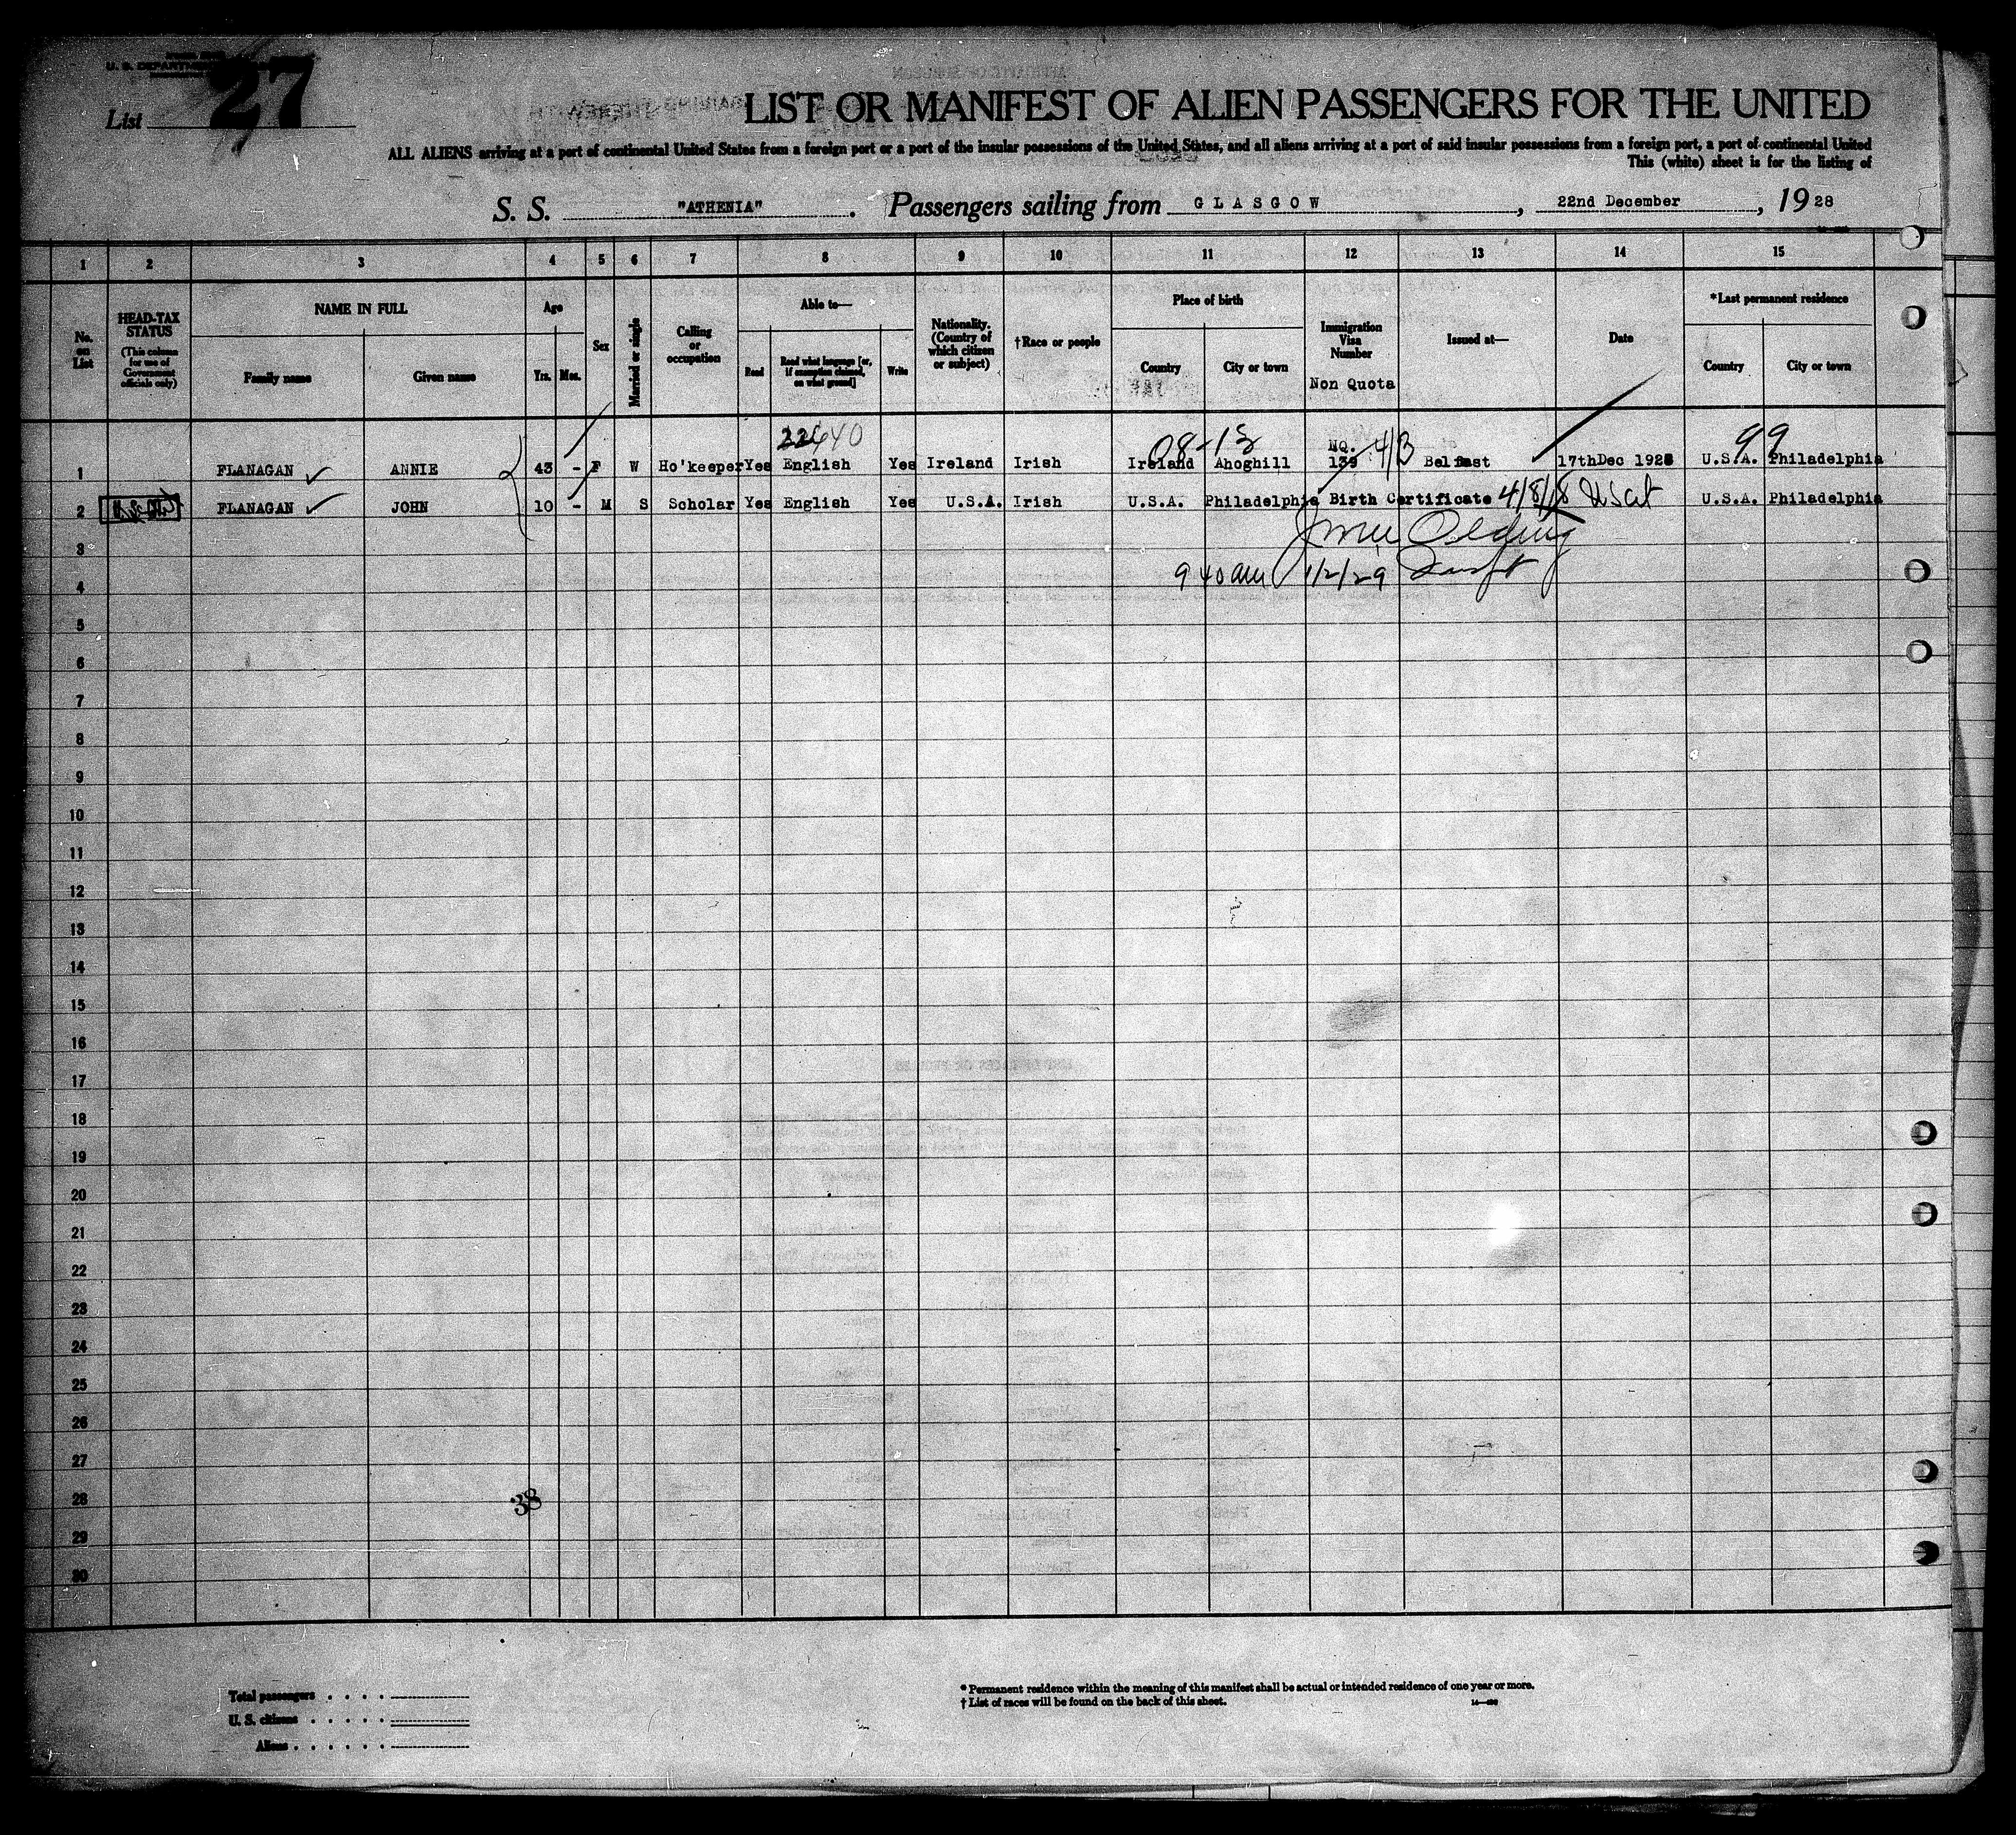 U. S. DEPARTMENT
List 27
LIST OR MANIFEST OF ALIEN PASSENGERS FOR THE UNITED
ALL ALIENS arriving at a port of continental United States from a foreign port or a port of the insular possessions of the United States, and all aliens arriving at a port of said insular possessions from a foreign port, a port of continental United
This (white) sheet is for the listing of
S. S. "ATHENIA". Passengers sailing from GLASGOW, 22nd December, 19 28
1 2 3 4 5 6 7 8 9 10 11 12 13 14 15
No. on List
HEAD-TAX STATUS (This column for use of Government officials only)
NAME IN FULL
Family name Given name
Age
Yrs. Mos.
Sex
Married or single
Calling or occupation
Able to—
Read Read what language [or, if exemption claimed, on what ground] Write
Nationality. (Country of which citizen or subject)
†Race or people
Place of birth
Country City or town
Immigration Visa Number
Non Quota
Issued at—
Date
*Last permanent residence
Country City or town
08-13 NQ. 4/3 99
1 FLANAGAN ANNIE 43 - F W Ho'keeper Yes English Yes Ireland Irish Ireland Ahoghill 139 Belfast 17thDec 1928 U.S.A. Philadelphia
2 FLANAGAN JOHN 10 - M S Scholar Yes English Yes U.S.A. Irish U.S.A. Philadelphia Birth Certificate 4/8/18 U.S.A. Philadelphia
3
9 40 am 1/2/29
4
5
6
7
8
9
10
11
12
13
14
15
16
17
18
19
20
21
22
23
24
25
26
27
28
38
29
30
Total passengers . . . .
U. S. citizens . . . . .
Aliens . . . . . .
* Permanent residence within the meaning of this manifest shall be actual or intended residence of one year or more.
† List of races will be found on the back of this sheet.